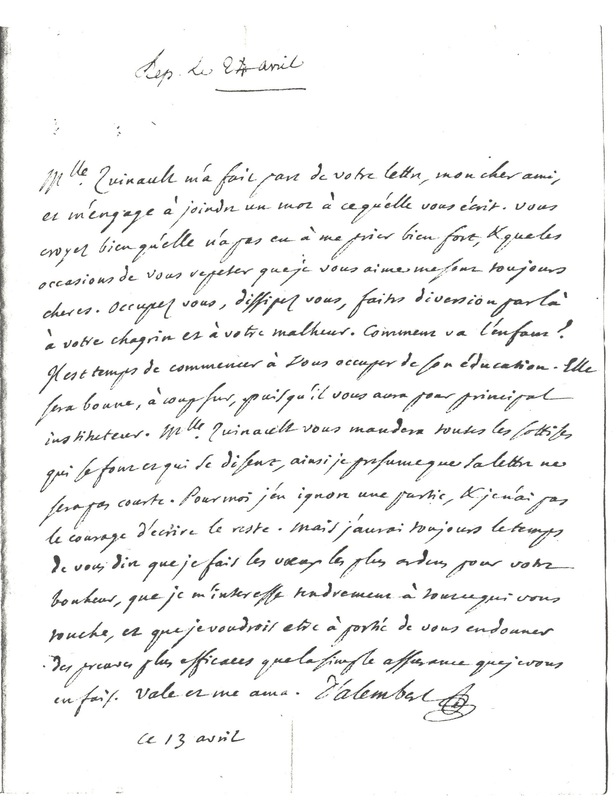 Rep. Le 24 avril
Mlle Quinault m'a fait part de votre lettre, mon cher ami,
et m'engage à joindre un mot à ce qu'elle vous écrit. vous
croyez bien qu'elle n'a pas eu à me prier bien fort, & que les
occasions de vous repeter que je vous aime me sont toujours
cheres. Occupez vous, dissipez vous, faites diversion par là
à votre chagrin et à votre malheur. Comment va l'enfant?
Il est temps de commencer à vous occuper de son éducation. Elle
sera bonne, à coup sur, puisqu'il vous aura pour principal
instituteur. Mlle Quinault vous mandera toutes les sottises
qui se font et qui se disent, ainsi je presume que sa lettre ne
sera pas courte. Pour moi j'en ignore une partie, & je n'ai pas
le courage d'écrire le reste. mais j'aurai toujours le temps
de vous dire que je fais les vœux les plus ardens pour votre
bonheur, que je m'interesse tendrement à tout ce qui vous
touche, et que je voudrois etre à portée de vous en donner
des preuves plus efficaces que la simple assurance que je vous
en fais. Vale et me ama. D'alembert
ce 13 avril